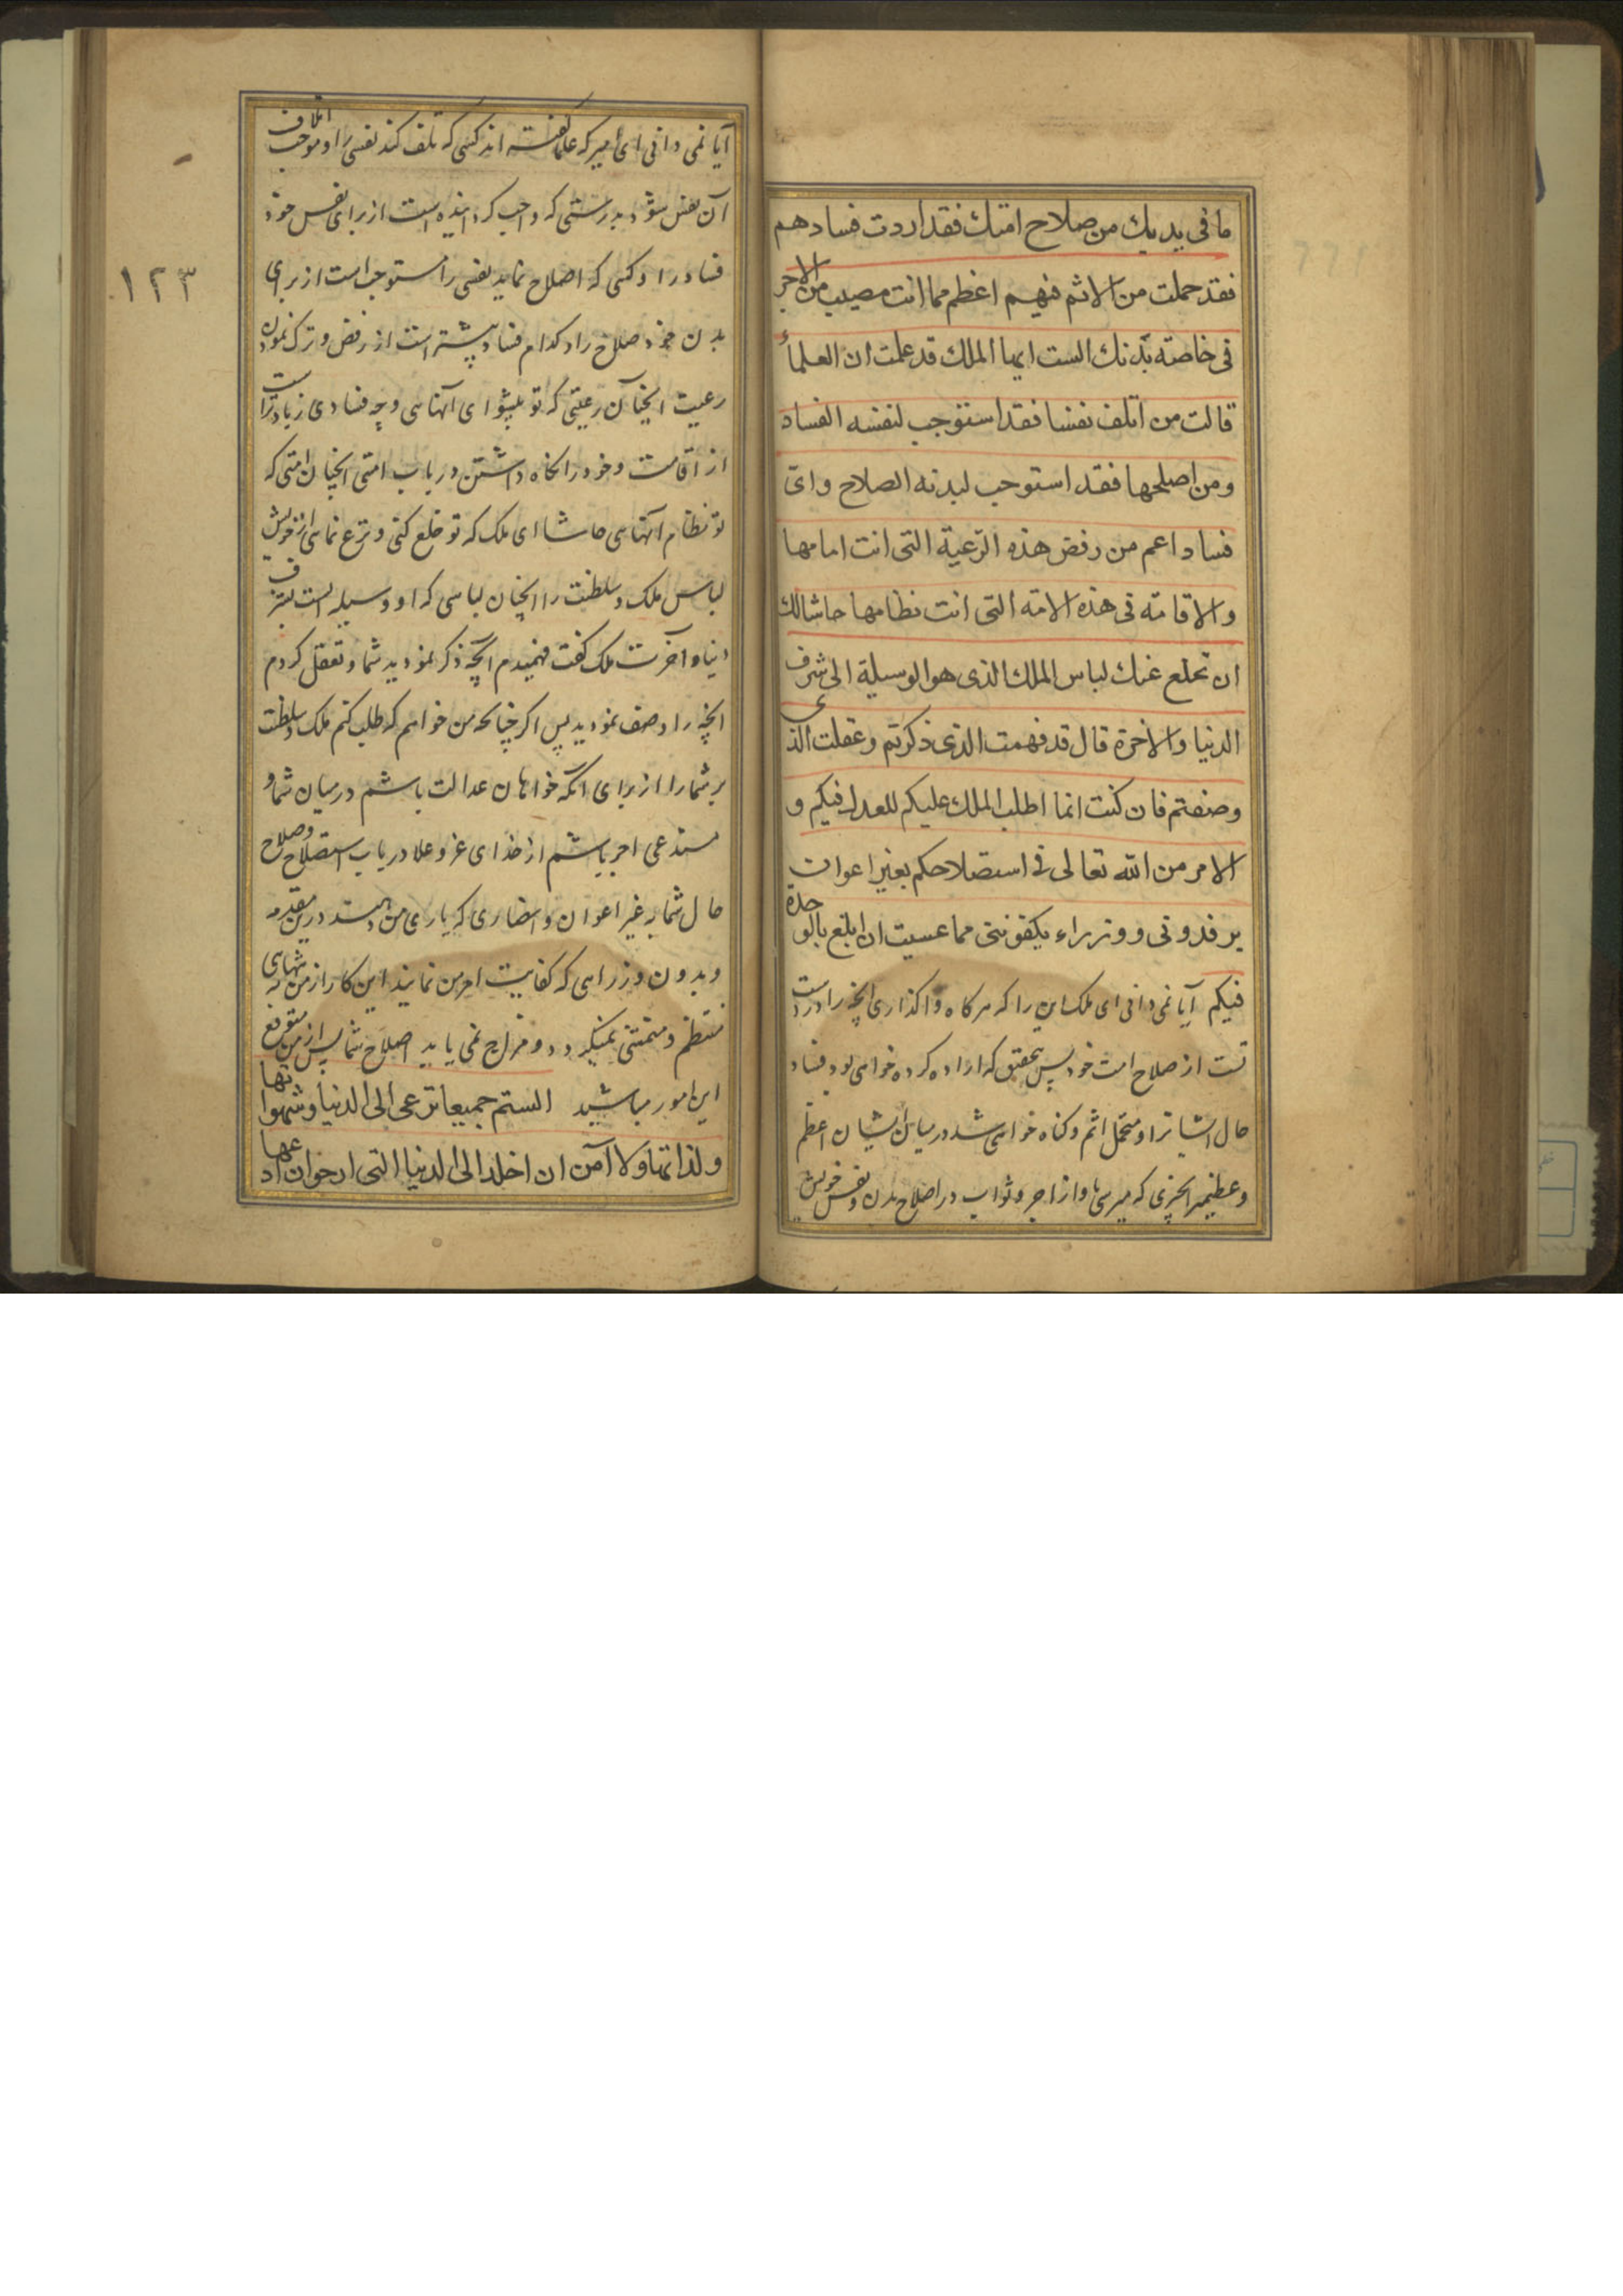 ما فى يديك من صلاح امتك فقد اردت فسادهم
فقد حملت من الاثم فيهم اعظم مما انت مصيب من الاجر
فى خاصة بدنك الست ايها الملك قد علمت ان العلماء
قالت من اتلف نفسا فقد استوجب لنفسه الفساد
ومن اصلحها فقد استوجب لبدنه الصلاح واىّ
فساد اعم من رفض هذه الرّعية التى انت امامها
والاقامة فى هذه الامة التى انت نظامها حاشالك
ان تخلع عنك لباس الملك الذى هو الوسيلة الى شرف
الدنيا والاخرة قال قد فهمت الذى ذكرتم وعقلت الذى
وصفتم فان كنت انما اطلب الملك عليكم للعدل فيكم و
الامر من الله تعالى فى استصلاحكم بغير اعوان
يرفدونى ووزراء يكفوننى مما عسيت ان ابلغ بالوحدة
فيكم آيا نمى دانى اى ملك اين را كه هركاه واكذارى انچه را در دست
تست از صلاح امت خود پس بتحقيق كه اراده كرده خواهى بود فساد
حال ايشانرا و متحمل اثم وكناه خواهى شد در ميان ايشان اعظم
وعظيمتر از چيزى كه ميرسى باو از اجر وثواب در اصلاح بدن ونفس خويش
آيا نمى دانى اى امير كه علما كفته اند كسى كه تلف كند نفسى را و موجب اتلاف
آن نفس شود بدرستى كه واجب كردانيده است از براى نفس خود
فساد را و كسى كه اصلاح نمايد نفسى را مستوجب است از براى
بدن خود صلاح را و كدام فساد بيشتر است از رفض وترك نمودن
رعيت انچنان رعيتى كه تو پيشواى آنهاسى وچه فسادى زيادتر است
از اقامت وخود را نكاه داشتن در باب امتى انچنان امتى كه
تو نظام آنهاسى حاشا اى ملك كه تو خلع كنى ونزع نماسى از خويش
لباس ملك وسلطنت را انچنان لباسى كه او وسيله است بشرف
دنيا وآخرت ملك كفت فهميدم انچه ذكر نموديد شما وتعقل كردم
انچه را وصف نموديد پس اكر چنانچه من خواهم كه طلب كنم ملك وسلطنت
بر شما را از براى آنكه خواهان عدالت باشم در ميان شما و
مستدعى اجر باشم از خداى عز وعلا در باب استصلاح وصلاح
حال شما به غير اعوان وانصارى كه يارى من دهند درين مقدمه
وبدون وزراسى كه كفايت امر من نمايند اين كار از من به تنهاى
منتظم و متمشى نميكردد ورواج نمى يابد اصلاح شما پس از من متوقع
اين امور مباشيد الستم جميعا تنزعى الى الدنيا وشهواتها
ولذاتها ولا آمن ان اخلد الى الدنيا التى ارجوان ادعها
١٢٣